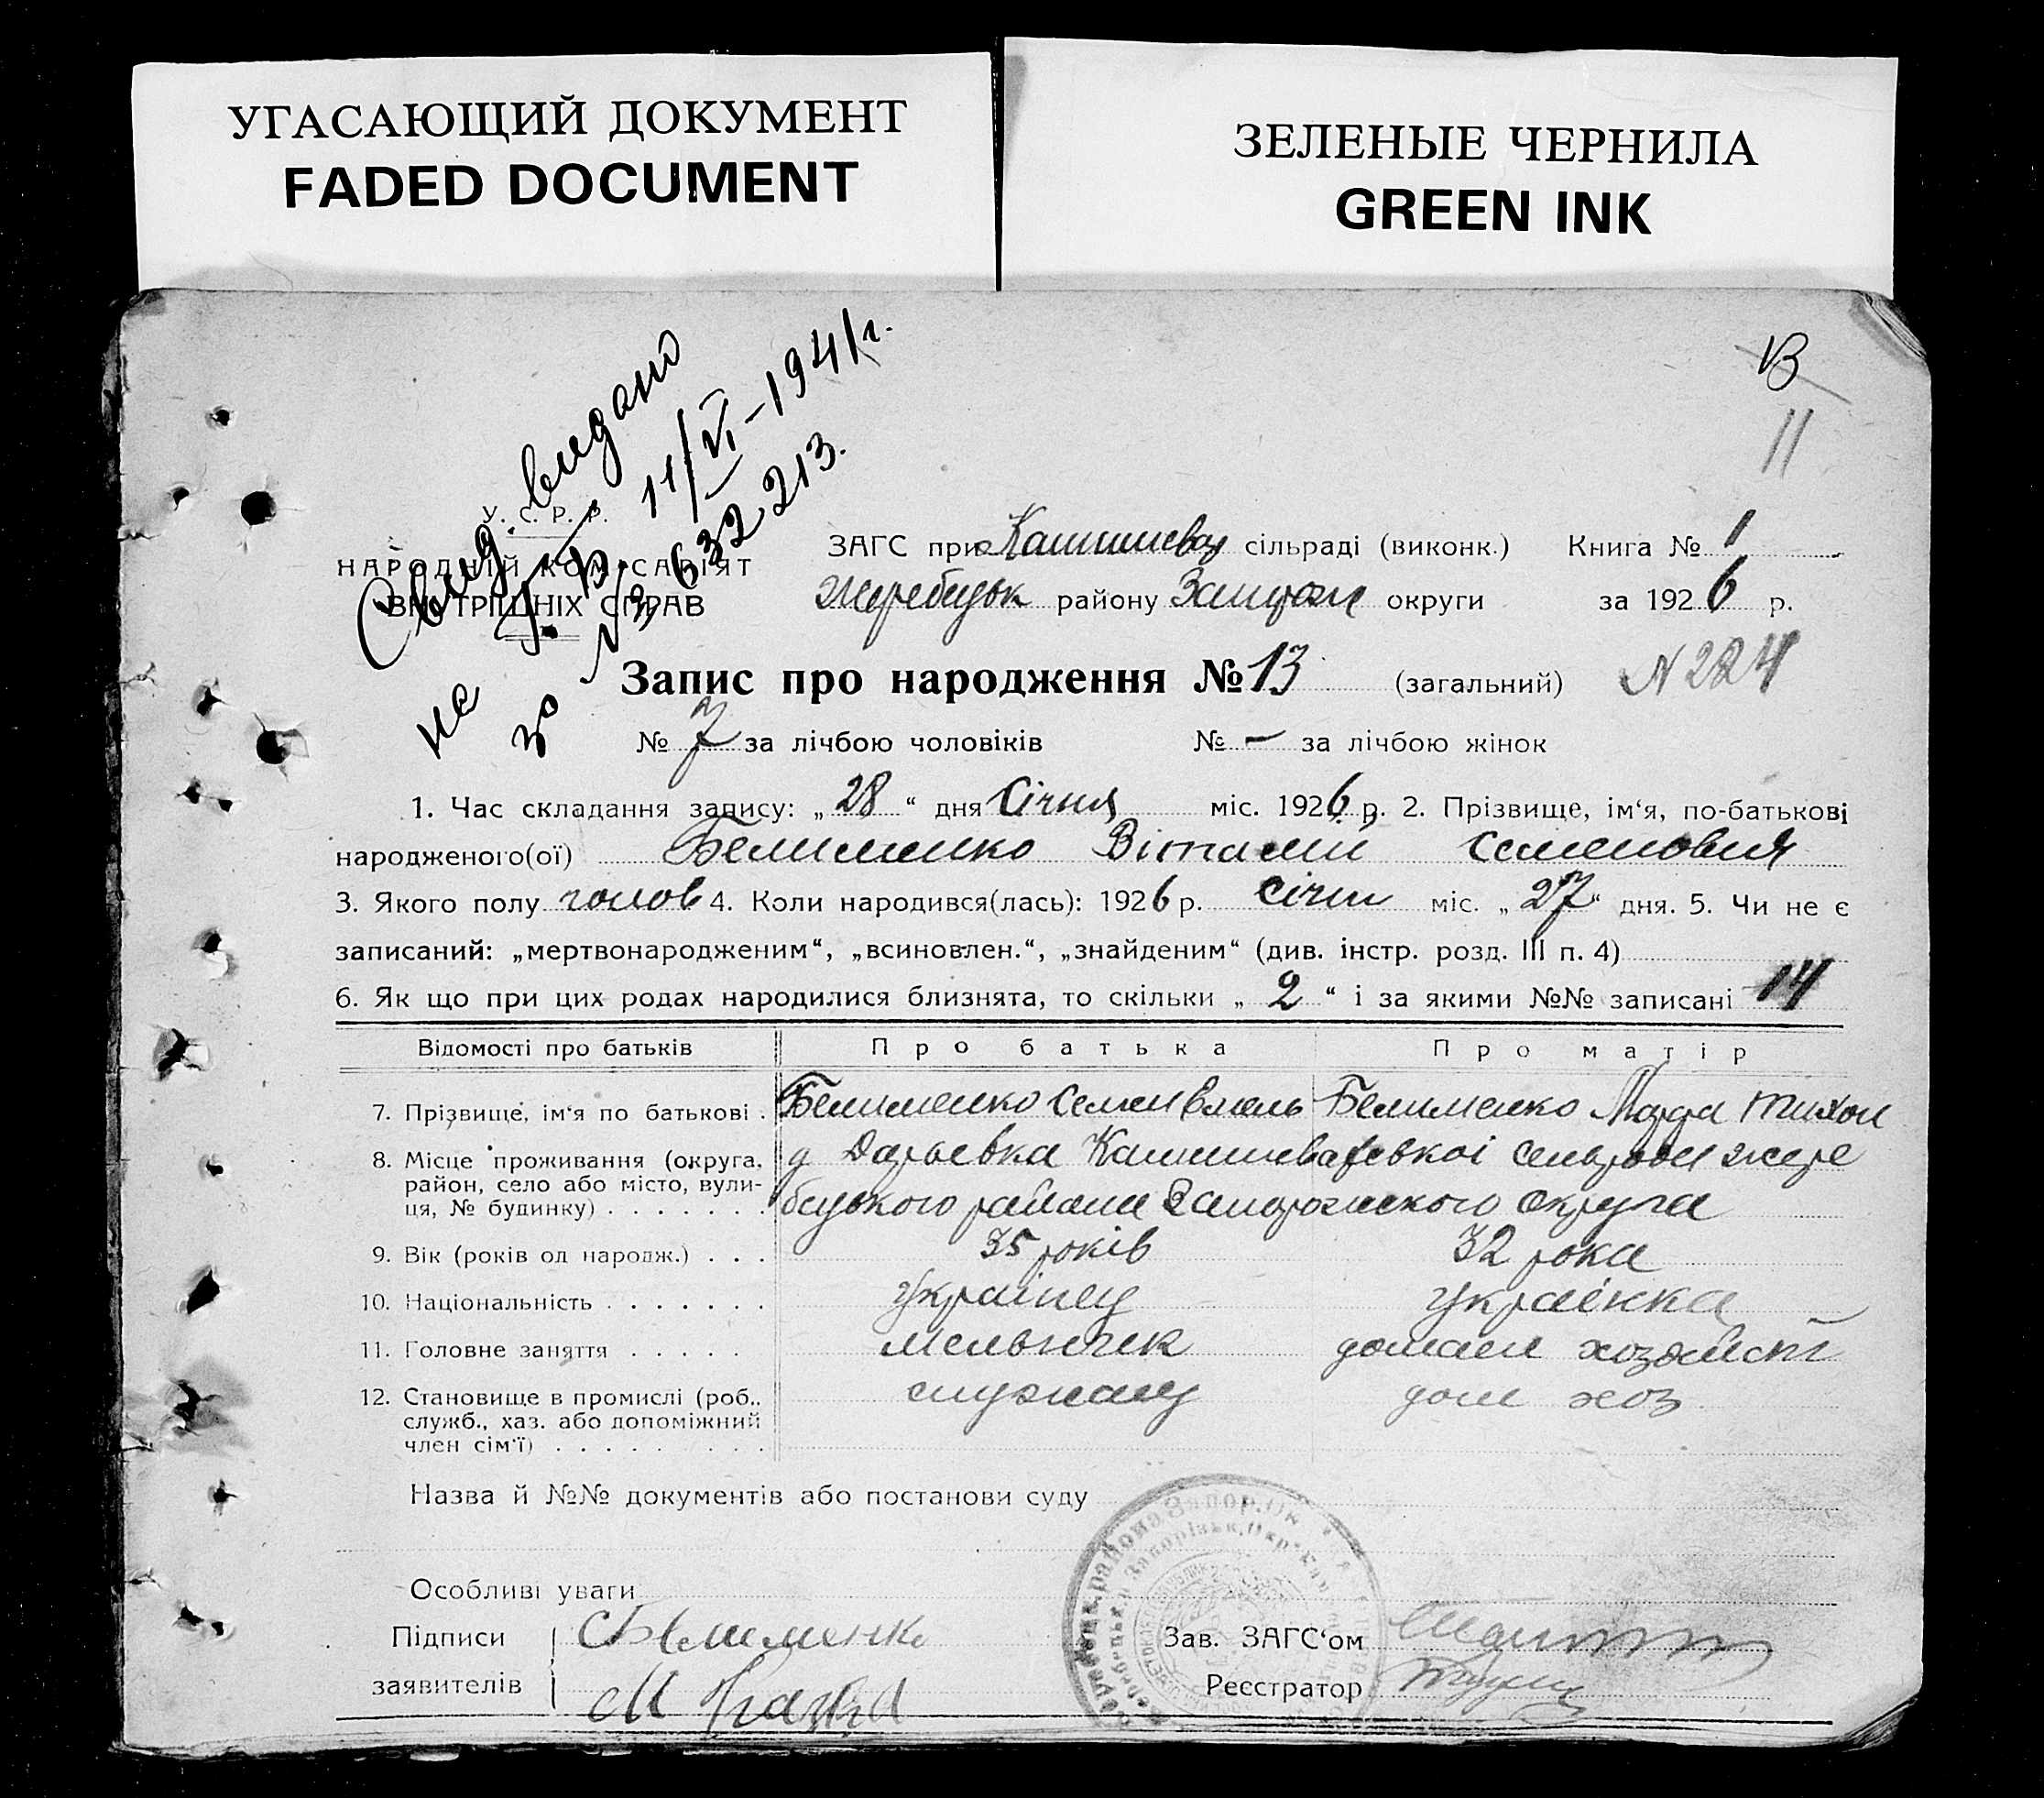 УГАСАЮЩИЙ ДОКУМЕНТ
FADED DOCUMENT
ЗЕЛЕНЫЕ ЧЕРНИЛА
GREEN INK
13
11
Свид. видано
11/VI-1941 г.
на
за № 632213.
У. С. Р. Р.
НАРОДНІЙ КОМІСАРІЯТ
ВНУТРІШНІХ СПРАВ
ЗАГС при сільраді (виконк.) Книга № 1
Жеребецьк району Запорож округи за 1926 р.
Запис про народження № 13 (загальний) N 224
№ 7 за лічбою чоловіків № - за лічбою жінок
1. Час складання запису: „28“ дня Січня міс. 1926 р. 2. Прізвище, ім‘я, по-батькові
народженого(ої) Белименко Віталий Семенович
3. Якого полу чолов 4. Коли народився(лась): 1926 р. січня міс. „27“ дня. 5. Чи не є
записаний: „мертвонародженим“, „всиновлен.“, „знайденим“ (див. інстр. розд. III п. 4)
6. Як що при цих родах народилися близнята, то скільки „2“ і за якими №№ записані 14
Відомості про батьків Про батька Про матір
7. Прізвище, ім‘я по батькові . Белименко Семен Белименко Марфа Тихон
8. Місце проживання (округа, д Дарьевка жере
район, село або місто, вули- бецького района Запорожского округа
ця, № будинку) . . . . . . .
9. Вік (років од народж.) . . . 35 років 32 рока
10. Національність . . . . . . . Українец Українка
11. Головне заняття . . . . . мельник домашн хозяйст
12. Становище в промислі (роб., служащ дом хоз
служб., хаз. або допоміжний
член сім‘ї) . . . . . . . .
Назва й №№ документів або постанови суду
Особливі уваги
Підписи СБелименко Зав. ЗАГС‘ом
заявителів М Реєстратор